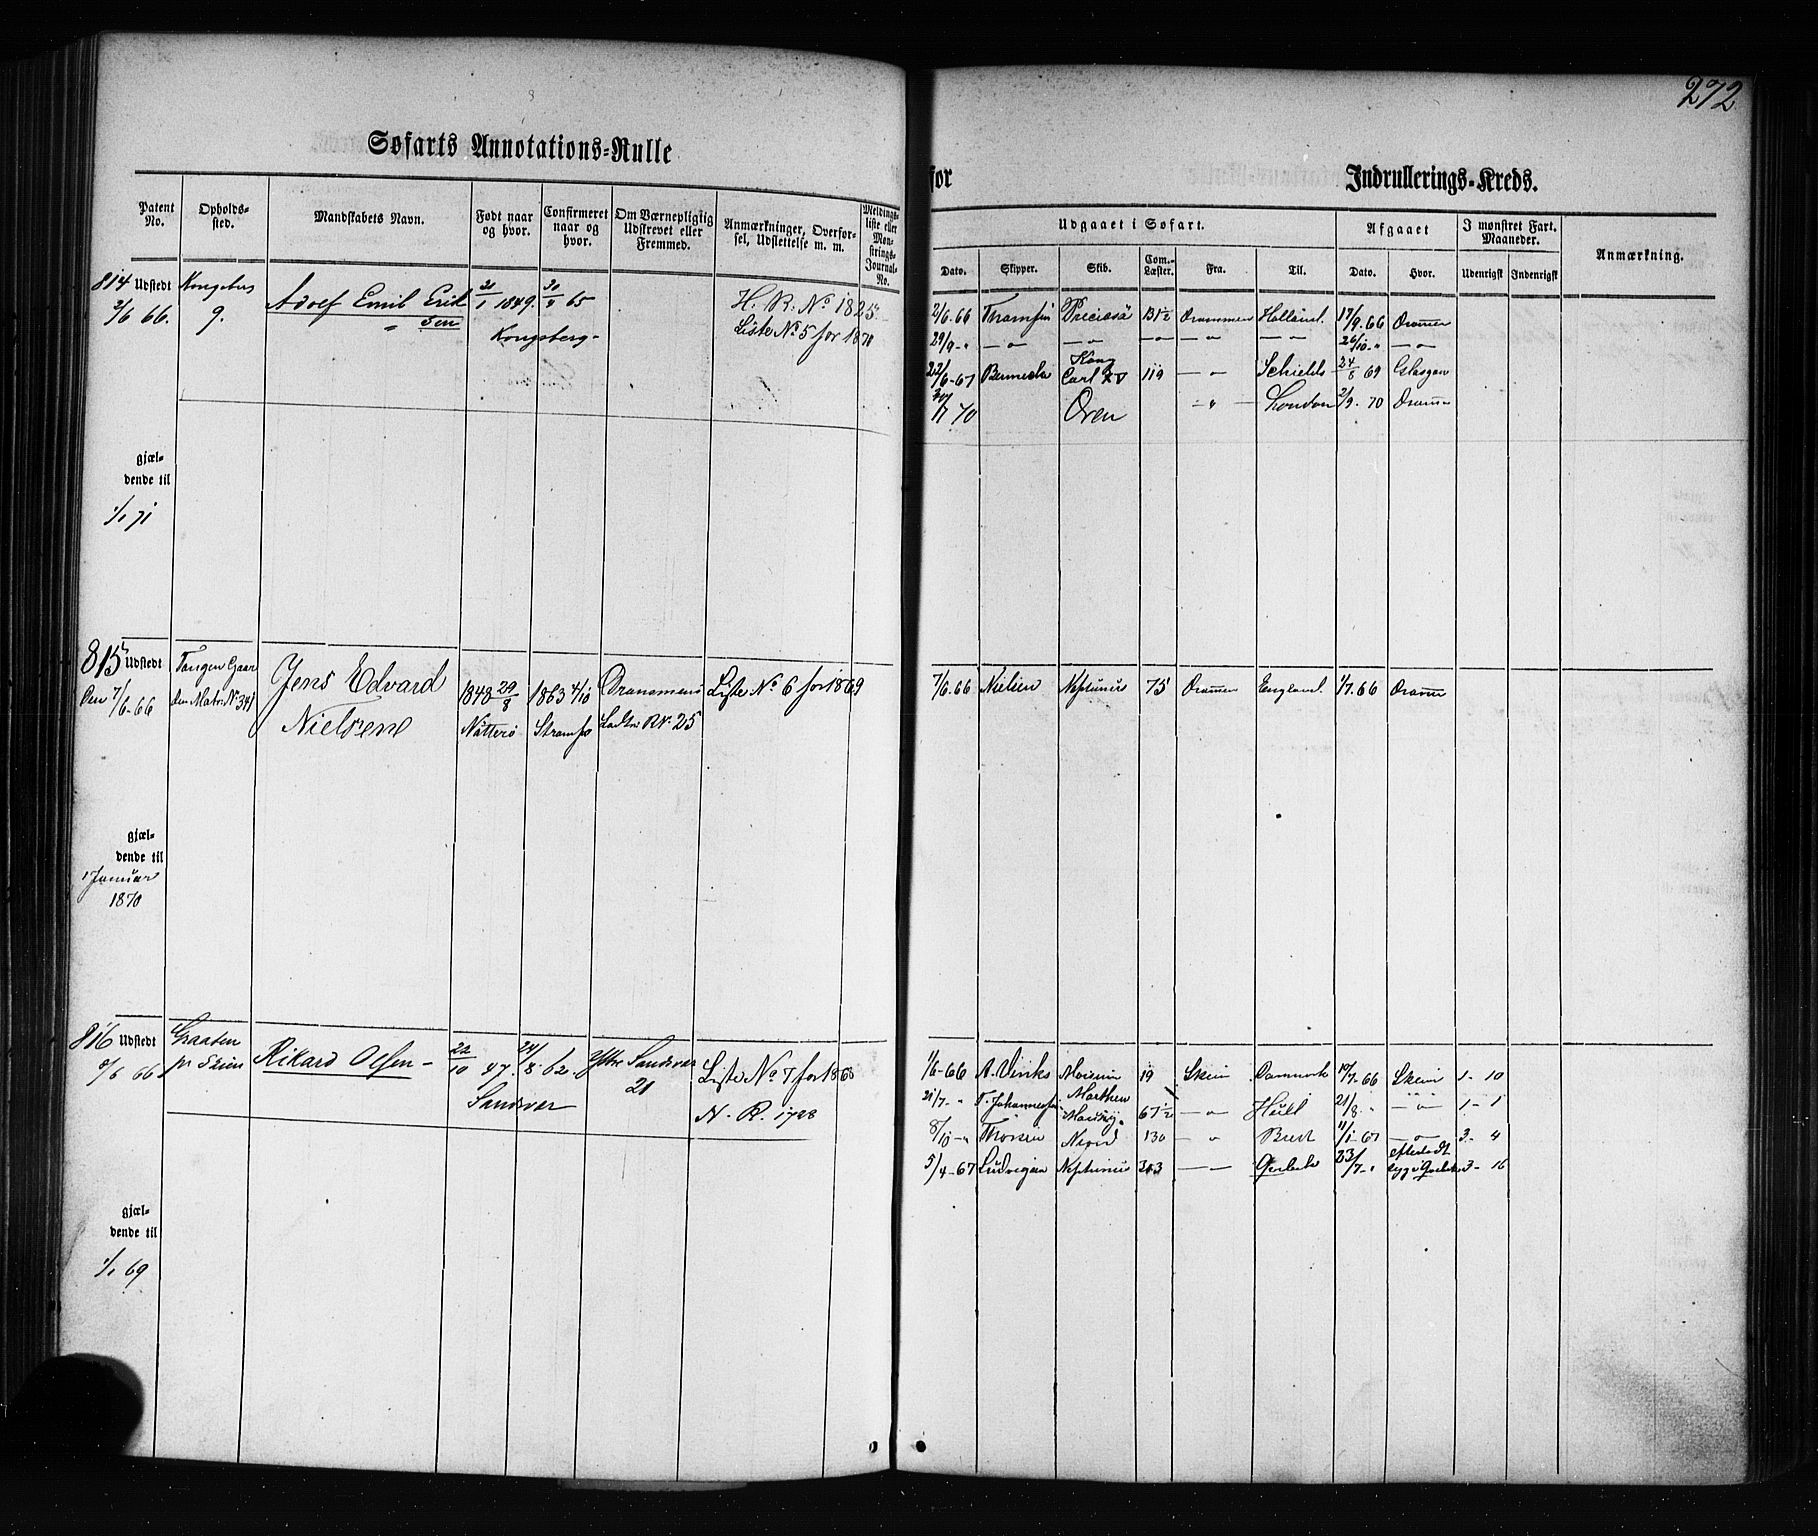 272
Søfarts Annotations-Rulle
for Indrullerings-Kreds.
Patent No.
Opholds-sted.
Mandskabets Navn.
Født naar og hvor.
Confirmeret naar og hvor.
Om Værnepligtig Udskrevet eller Fremmed.
Anmærkninger, Overførsel, Udslettelse m. m.
Meldings-liste eller Mønstrings-Journal-No.
Udgaaet i Søfart.
Afgaaet
I mønstret Fart. Maaneder.
Anmærkning.
Dato. Skipper. Skib. Com.-Læster. Fra. Til. Dato. Hvor. Udenrigst Indenrigst
814 Udstedt 2/6 66.
Kongsberg 9.
Adolf Emil Erik
sen
21/1 1849. Kongsberg
30/4 65
H. R. No 1825
Liste No 5 for 1870
2/6 66 Thomsen Preciosa 131/2 Drammen Holland. 17/9 66 Dramn
29/9 - " — " — — " — — " — — " — — — 26/10 - " — " —
22/6 - 67 Kong Carl XV 119 — " Schields 24/8 69 Glasgow
70 Oren — " — London 2/9 - 70 Dramn
gjæl-
dende til
1/1 71
815 Udstedt
Den 7/6 - 66
Tangen Gaar
den Matr. No 341
Jens Edvard
Nielsen
1848 29/8 Nøtterø
1863 4/10 Strømsø
Drammens
Ladtn R No. 25
Liste No 6 for 1869
7/6 66 Nielsen Neptunus 75 Dramen England. 1/7. 66 Dramn
gjæl-
dende til
1 Januar
1870
816 Udstedt
6/6 66
Graaten
pr Skien
Rikard Olsen -
22/10 47. Sandsvær
24/8. 62.
Ytre Sandsvær
21
Liste No 7 for 1868
H. R. 1728
1/6 - 66 A. Vinks 19 Skien Danmark 19/7. 66 Skien 1 - 10
21/7. " T. Johannessen Marthen 67 1/2 — " Hull 21/8. " — " — 1 - 1
8/10 - " Thorsen Njord 130 — " Brest 11/1 - 67 — " — 3 - 4
5/4 - 67 Ludvigsen Neptunus 303 — — Qvebek 23/7. " efterladt
syg i Qvebek 3 - 16
gjæl-
dende til
1/1 69